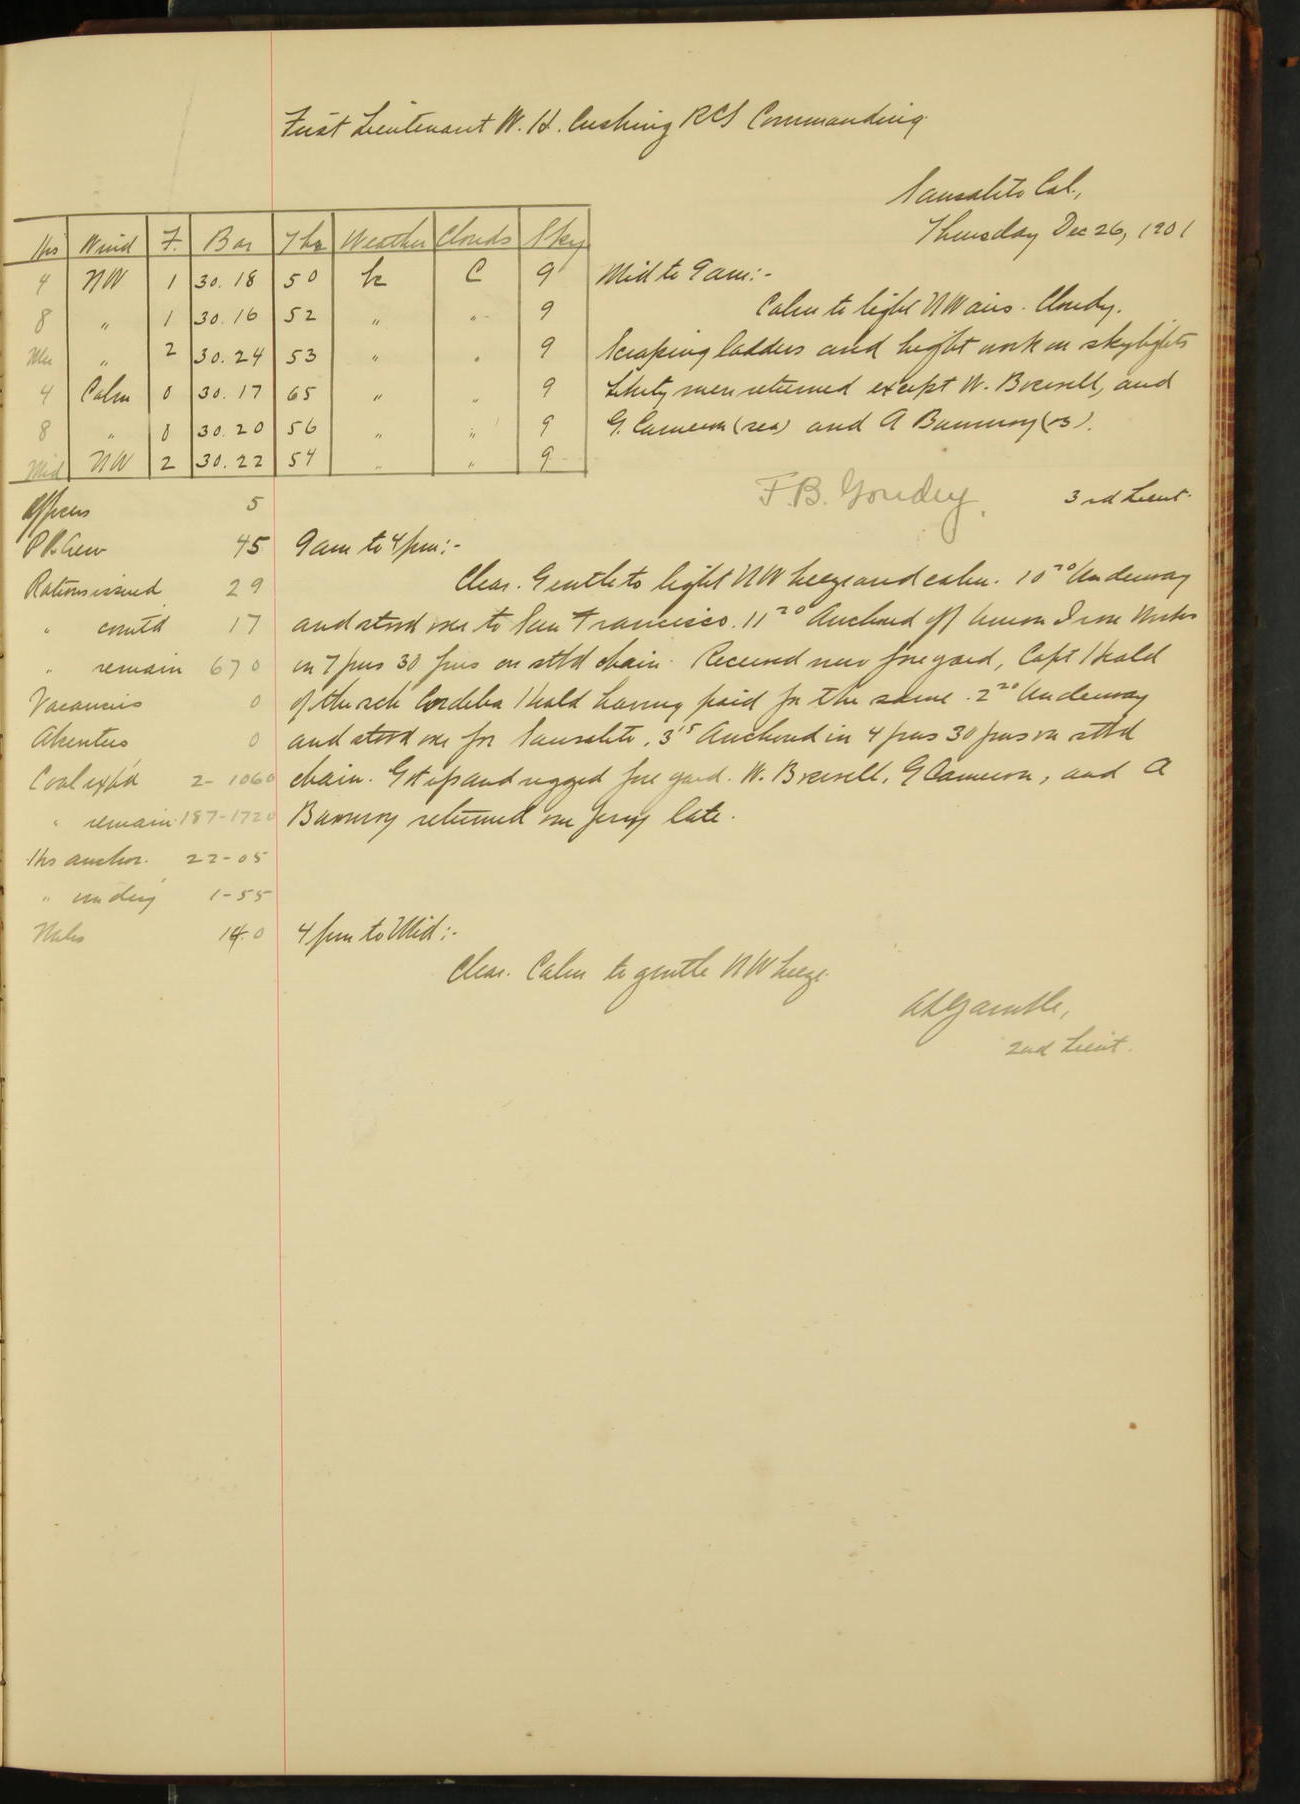 First Lieutenant W. H. Cushing RCS Commanding
Sausalito Cal.,
Thursday Dec 26, 1901
Hrs Wind F. Bar Ther Weather Clouds Sky
4 NW 1 30.18 50 C 9
8 " 1 30.16 52 " " 9
Mer " 2 30.24 53 " " 9
4 Calm 0 30.17 65 " " 9
8 " 0 30.20 56 " " 9
Mid NW 2 30.22 54 " " 9
Mid to 9 am:-
Calm to light NW airs. Cloudy.
Scraping ladders and bright work on skylights
Liberty men returned except W. and
G. Cameron (sea) and A
F.B. Goudey, 3rd Lieut.
Officers 5
P R. Crew 45
Rations issued 29
" comtd 17
" remain 670
Vacancies 0
Absentees 0
Coal exp'd 2-1060
" remain 187-1720
Hrs anchor. 22-05
" underway 1-55
Miles 14.0
9 am to 4 pm:-
Clear. Gentle to light NW breeze and calm. 10 20 Underway
and stood over to San Francisco. 11 20 Anchored off Union Iron Works
in 7 fms 30 fms on stbd chain. Received new fore yard, Capt
of the sch having paid for the same. 2 20 Underway
and stood over for Sausalito. 3 15 Anchored in 4 fms 30 fms on stbd
chain. Got up and rigged fore yard. W. G Cameron, and A
returned one ferry late.
4 pm to Mid:-
Clear. Calm to gentle NW breeze.
A L Gamble,
2nd Lieut.